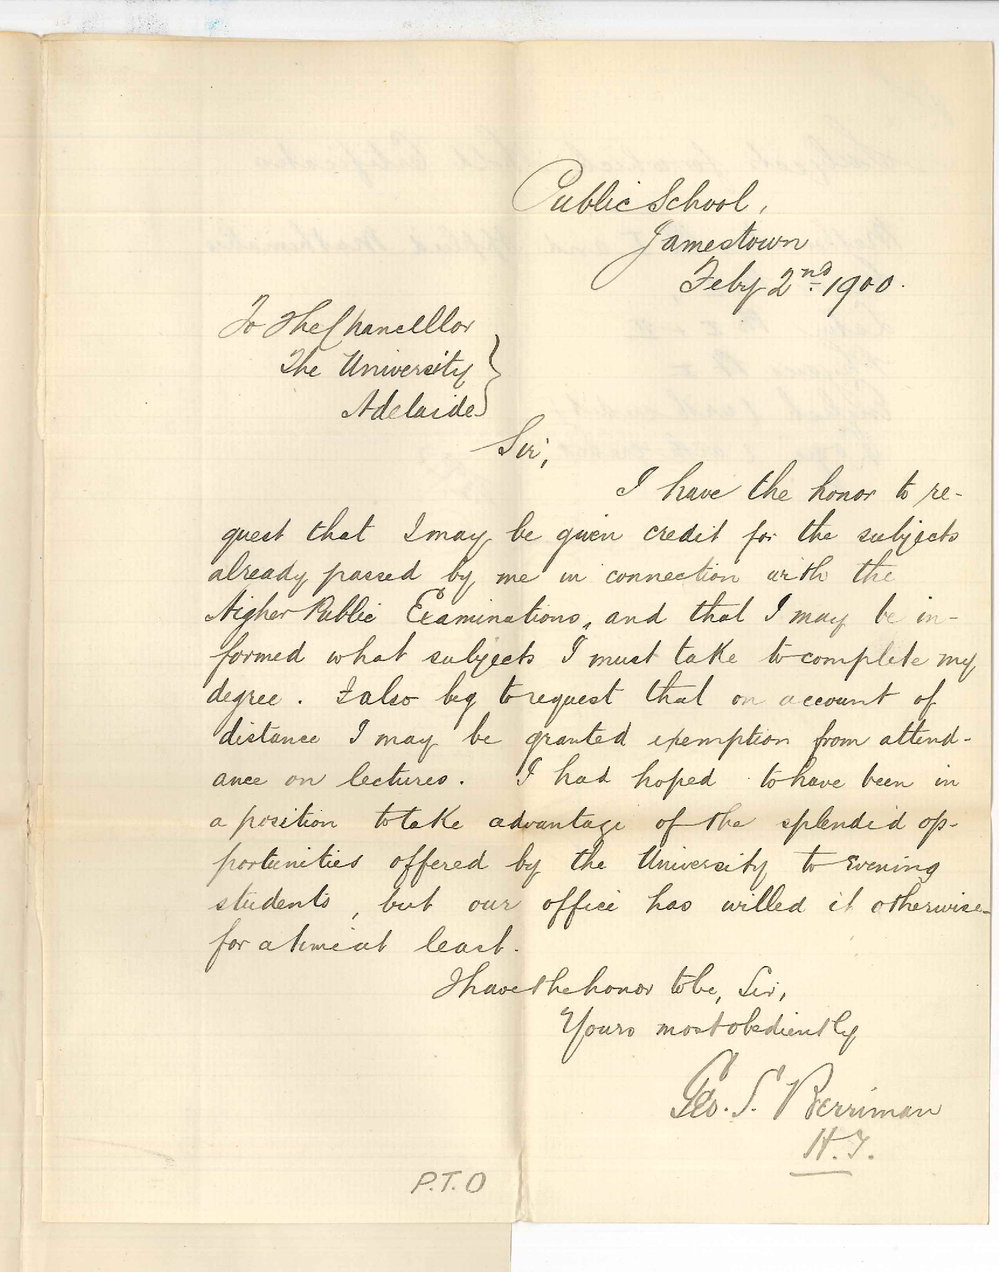 Public School,
Jamestown
Feby 2nd 1900.
To The Chancelllor
The University
Adelaide
Sir,
I have the honor to re-
quest that I may be given credit for the subjects
already passed by me in connection with the
Higher Public Examinations, and that I may be in-
formed what subjects I must take to complete my
degree. I also beg to request that on account of
distance I may be granted exemption from attend-
ance on lectures. I had hoped to have been in
a position to take advantage of the splendid op-
portunities offered by the University to Evening
students, but our office has willed it otherwise-
for a time at least.
I have the honor to be, Sir,
Yours most obediently
Geo. S. Berriman
H.T.
P.T.O